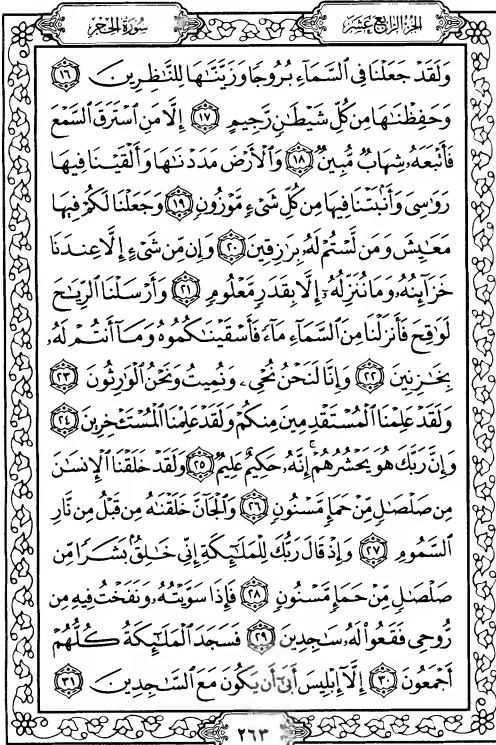 سُورَةُ الحِجْرِ
الجزء الرابع عشر
وَلَقَدْ جَعَلْنَا فِي ٱلسَّمَآءِ بُرُوجًا وَزَيَّنَّٰهَا لِلنَّٰظِرِينَ ١٦
وَحَفِظْنَٰهَا مِن كُلِّ شَيْطَٰنٍ رَّجِيمٍ ١٧ إِلَّا مَنِ ٱسْتَرَقَ ٱلسَّمْعَ
فَأَتْبَعَهُۥ شِهَابٌ مُّبِينٌ ١٨ وَٱلْأَرْضَ مَدَدْنَٰهَا وَأَلْقَيْنَا فِيهَا
رَوَٰسِىَ وَأَنۢبَتْنَا فِيهَا مِن كُلِّ شَىْءٍ مَّوْزُونٍ ١٩ وَجَعَلْنَا لَكُمْ فِيهَا
مَعَٰيِشَ وَمَن لَّسْتُمْ لَهُۥ بِرَٰزِقِينَ ٢٠ وَإِن مِّن شَىْءٍ إِلَّا عِندَنَا
خَزَآئِنُهُۥ وَمَا نُنَزِّلُهُۥٓ إِلَّا بِقَدَرٍ مَّعْلُومٍ ٢١ وَأَرْسَلْنَا ٱلرِّيَٰحَ
لَوَٰقِحَ فَأَنزَلْنَا مِنَ ٱلسَّمَآءِ مَآءً فَأَسْقَيْنَٰكُمُوهُ وَمَآ أَنتُمْ لَهُۥ
بِخَٰزِنِينَ ٢٢ وَإِنَّا لَنَحْنُ نُحْىِۦ وَنُمِيتُ وَنَحْنُ ٱلْوَٰرِثُونَ ٢٣
وَلَقَدْ عَلِمْنَا ٱلْمُسْتَقْدِمِينَ مِنكُمْ وَلَقَدْ عَلِمْنَا ٱلْمُسْتَـْٔخِرِينَ ٢٤
وَإِنَّ رَبَّكَ هُوَ يَحْشُرُهُمْ ۚ إِنَّهُۥ حَكِيمٌ عَلِيمٌ ٢٥ وَلَقَدْ خَلَقْنَا ٱلْإِنسَٰنَ
مِن صَلْصَٰلٍ مِّنْ حَمَإٍ مَّسْنُونٍ ٢٦ وَٱلْجَآنَّ خَلَقْنَٰهُ مِن قَبْلُ مِن نَّارِ
ٱلسَّمُومِ ٢٧ وَإِذْ قَالَ رَبُّكَ لِلْمَلَٰٓئِكَةِ إِنِّى خَٰلِقٌۢ بَشَرًا مِّن
صَلْصَٰلٍ مِّنْ حَمَإٍ مَّسْنُونٍ ٢٨ فَإِذَا سَوَّيْتُهُۥ وَنَفَخْتُ فِيهِ مِن
رُّوحِى فَقَعُوا۟ لَهُۥ سَٰجِدِينَ ٢٩ فَسَجَدَ ٱلْمَلَٰٓئِكَةُ كُلُّهُمْ
أَجْمَعُونَ ٣٠ إِلَّآ إِبْلِيسَ أَبَىٰٓ أَن يَكُونَ مَعَ ٱلسَّٰجِدِينَ ٣١
٢٦٣